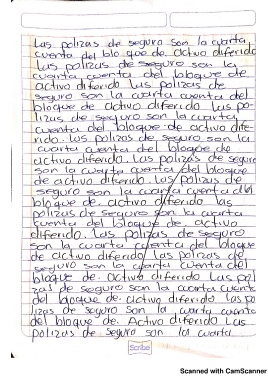 Las polizas de seguro son la cuarta,
cuenta del bloque de activo diferido
Las polizas de seguro son la
cuarta cuenta del bloque de
activo diferido Las polizas de
seguro son la cuarta cuenta del
bloque de activo diferido Las po-
lizas de seguro son la cuarta
cuenta del bloque de activo dife-
rido. Las polizas de seguro son la
cuarta cuenta del bloque de
activo diferido. Las polizas de seguro
son la cuarta cuenta del bloque
de activo diferido Las polizas de
seguro son la cuarta cuenta del
bloque de activo diferido las
polizas de seguro son la cuarta
cuenta del bloque de activo
diferido. Las polizas de seguro
son la cuarta cuenta del bloque
de activo diferido. Las polizas de
seguro son la cuarta cuenta del
bloque de Activo diferido Las poli
zas de seguro son la cuarta cuenta
del bloque de Activo diferido Las po
lizas de seguro son la cuarta cuenta
del bloque de. Activo diferido Las
polizas de seguro son la cuarta
Scribe
Scanned with CamScanner